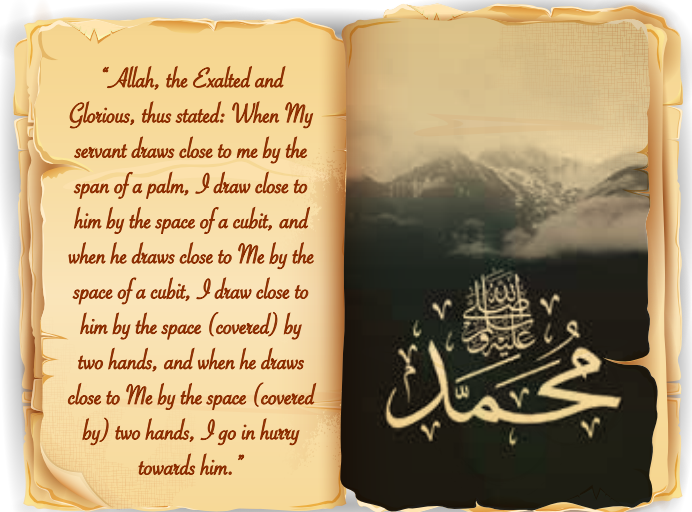 “Allah, the Exalted and
Glorious, thus stated: When My
servant draws close to me by the
span of a palm, I draw close to
him by the space of a cubit, and
when he draws close to Me by the
space of a cubit, I draw close to
him by the space (covered) by
two hands, and when he draws
close to Me by the space (covered
by) two hands, I go in hurry
towards him.”
صلى الله عليه وسلم
محمد